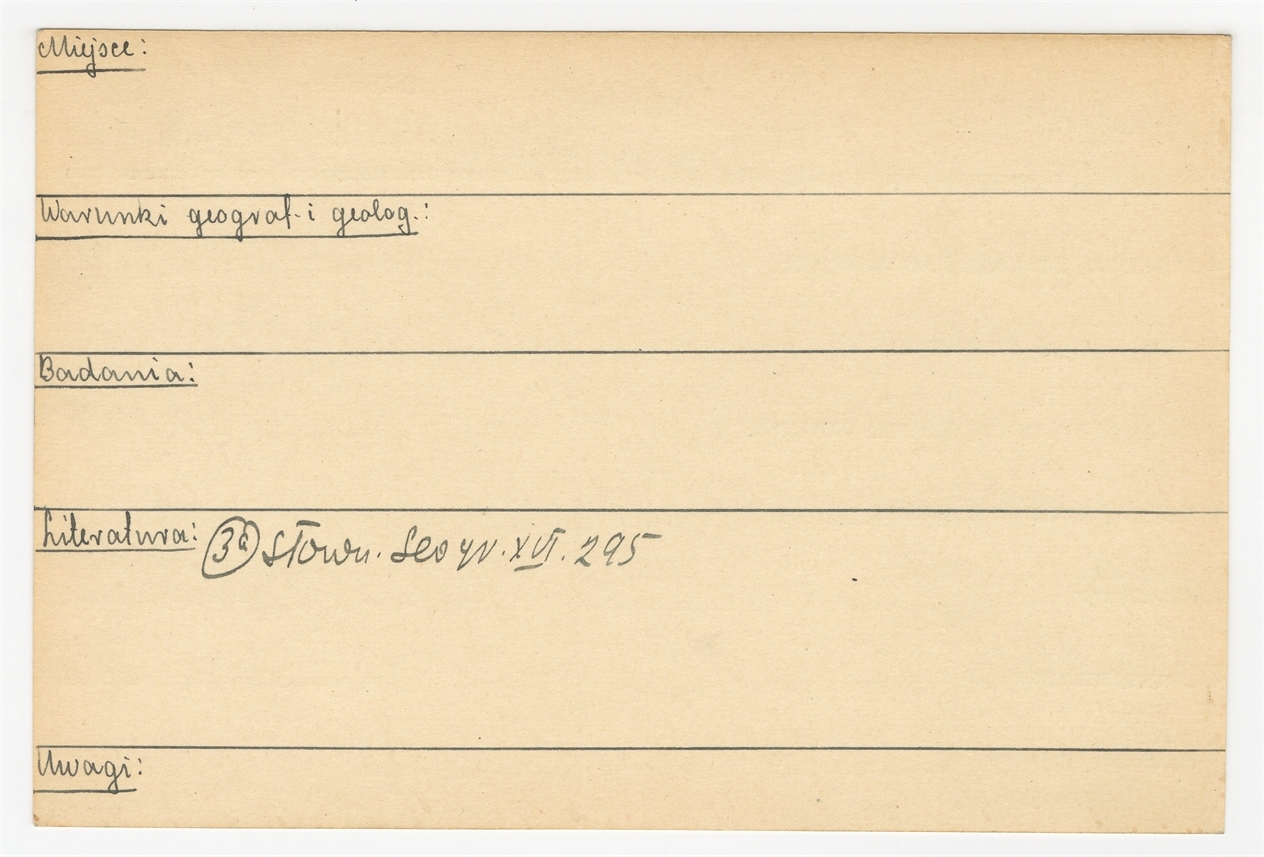 Miejsce:
Warunki geograf. i geolog.:
Badania:
Literatura: 3a Słown. Geogr. XVI. 295
Uwagi: